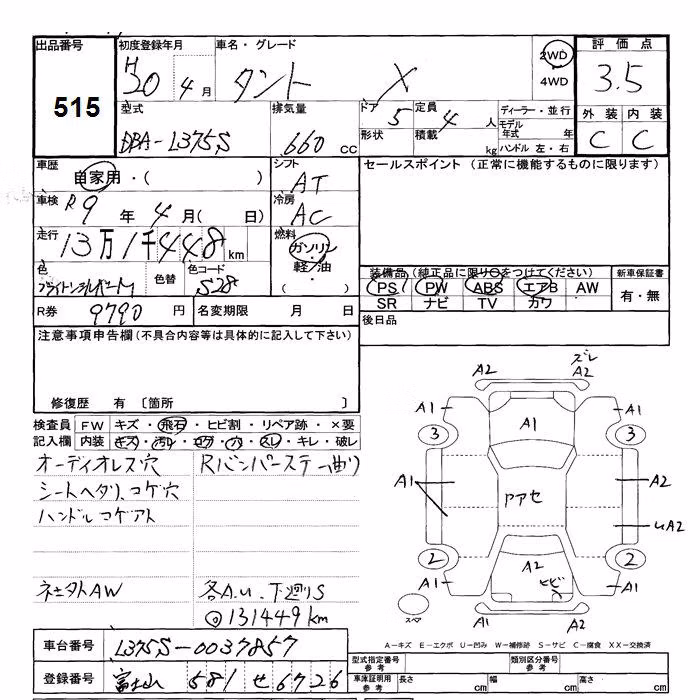 出品番号
515
初度登録年月
H20年4月
車名・グレード
タント X
2WD
4WD
評価点
3.5
外装 内装
C C
型式
DBA-L375S
排気量
660 cc
ドア 5
形状
定員 4 人
積載 kg
ディーラー・並行
モデル年式 年
ハンドル 左・右
車歴
自家用・( )
シフト
AT
セールスポイント (正常に機能するものに限ります)
車検
R9年4月( 日)
冷房
AC
走行
13万1千448km
燃料
ガソリン
軽/油
色
色替
色コード
S28
装備品 (純正品に限り○をつけてください)
PS PW ABS エアB AW
SR ナビ TV カワ
新車保証書
有・無
R券 9790 円
名変期限 月 日
後日品
注意事項申告欄 (不具合内容等は具体的に記入して下さい)
修復歴 有 〔箇所 〕
検査員記入欄
FW キズ・飛石・ヒビ割・リペア跡・×要
内装 キズ・汚レ・コゲ・穴・スレ・キレ・破レ
オーディオレス穴
シートヘタリ、コゲ穴
ハンドルコゲアト
社外AW
Rバンパーステー曲り
各A.U.下廻りS
◎131449km
A2
ズレ
A2
A1
A1
3
3
A1
A1
A2
アアセ
UA2
2
2
A2
ヒビ
A1
A1
A2
A2
スペア
A-キズ E-エクボ U-凹み W-補修跡 S-サビ C-腐食 XX-交換済
車台番号 L375S-0037857
登録番号 富士山 581 せ 6726
型式指定番号 参考
類別区分番号 参考
車庫証明用 参考
長さ cm
幅 cm
高さ cm